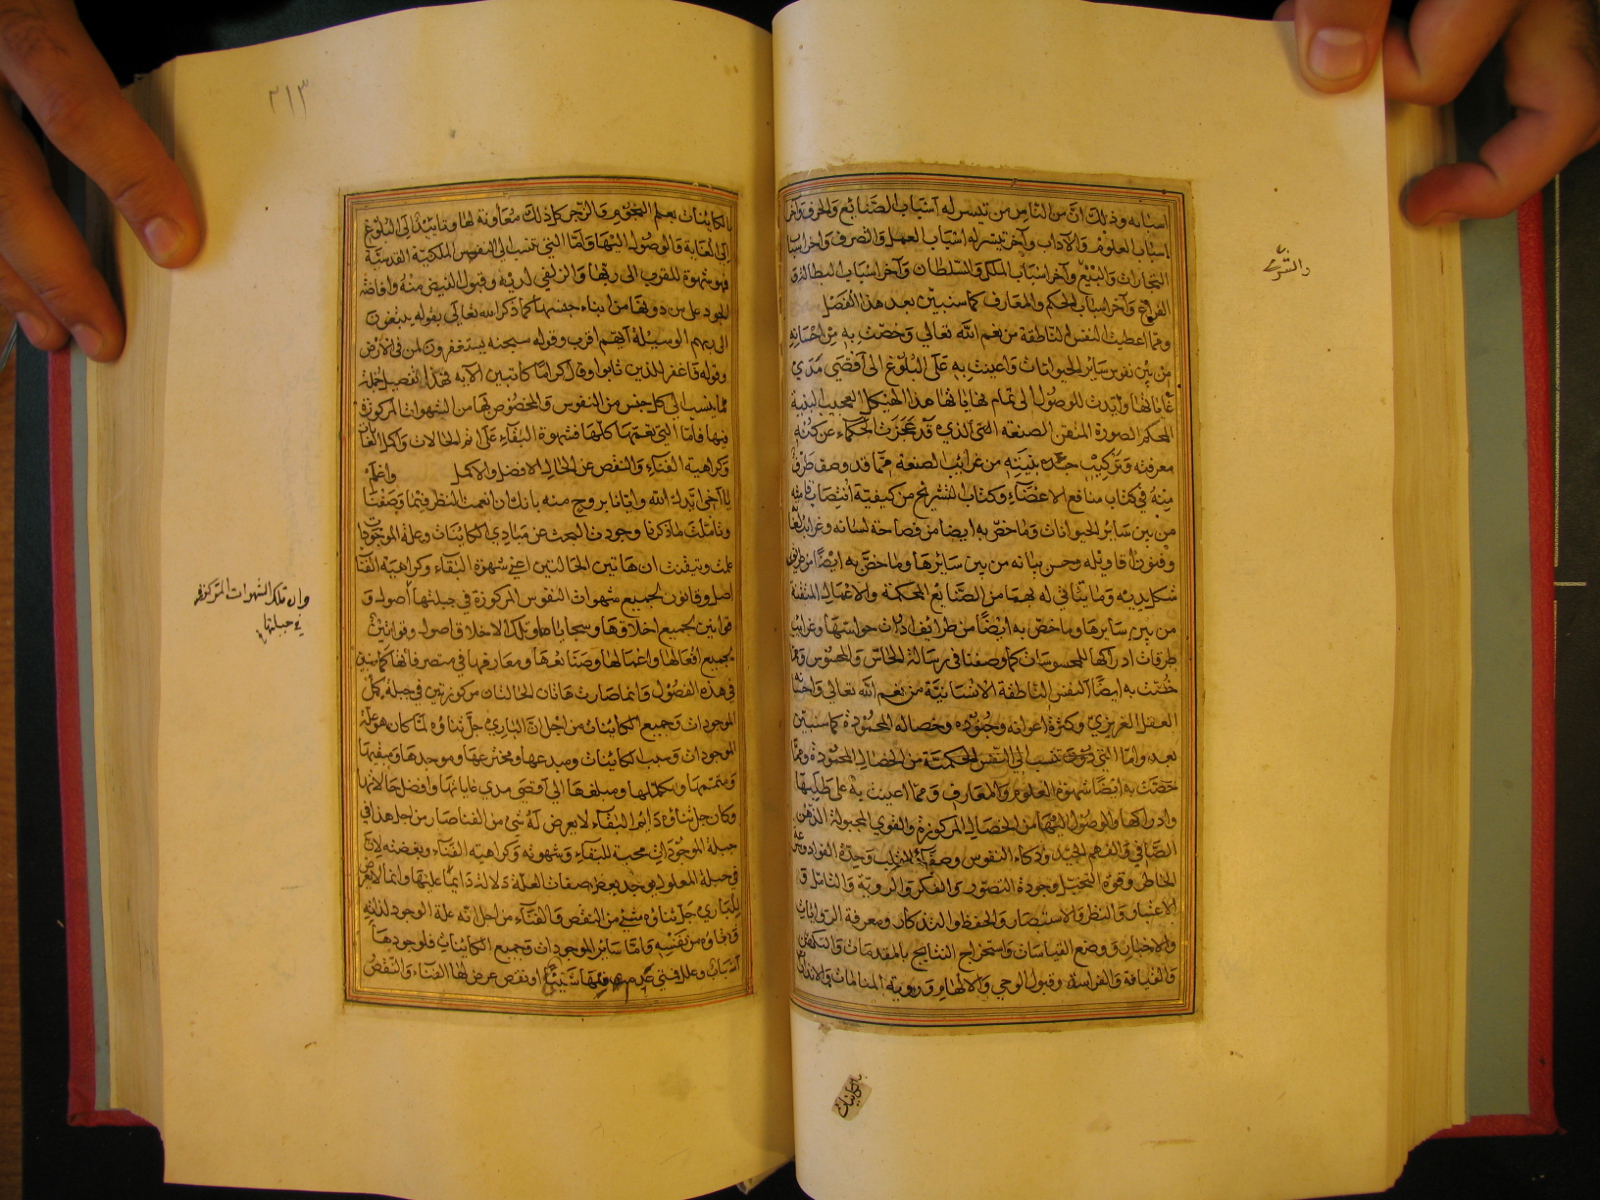 اسبابه وذلك انّ من الناس من تيسر له اسباب الصنائع والحرف وآخر
اسباب العلوم والآداب وآخر تيسر له اسباب العمل والتصرف وآخر اسباب
التجارات والبيع وآخر اسباب الملك والسلطان وآخر اسباب البطالة و
الفراغ وآخر اسباب الحكم والمعارف كما سنبين بعد هذا الفصل
ومما اعطيت النفس الناطقة من نعم الله تعالى وخصت به من احسانه
من بين نفوس سائر الحيوانات واعينت به على البلوغ الى اقصى مدى
غاياتها وأيدت للوصول الى تمام نهاياتها هذا الهيكل العجيب البنية
المحكم الصورة المتقن الصنعة الذي قد عجزت الحكماء عن كنه
معرفته وتركيب بنيته من غرائب الصنعة مما قد وصف طرف
منه في كتاب منافع الاعضاء وكتاب التشريح من كيفية انتصاب قامته
من بين سائر الحيوانات وما خص به ايضا من فصاحة لسانه وغرائب لغاته
وفنون اقاويله وحسن بيانه من بين سائرها وما خص به ايضا من طرائف
شكل يديه وما يتأتى له بهما من الصنائع المحكمة والاعمال المتقنة
من بين سائرها وما خص به ايضا من طرائف ادوات حواسها وغرائب
طرقات ادراكها للمحسوسات كما وصفنا في رسالة الحاس والمحسوس ومما
خصت به ايضا النفس الناطقة الانسانية من نعم الله تعالى واحسانه
العقل الغريزي وكثرة اعوانه وجنوده وخصاله المحمودة كما سنبين
بعد واما التي تنسب الى النفس الحكمية من الخصال المحمودة ومما
خصت به ايضا شهوة العلوم والمعارف ومما اعينت به على طلبها
وادراكها والوصول اليها من الخصال المركوزة والقوى المجبولة الذهن
الصافي والفهم الجيد وذكاء النفوس وصفاء القلب وحدة الفؤاد وسرعة
الخاطر وقوة التخيل وجودة التصور والفكر والروية والتأمل و
الاعتبار والنظر والاستبصار والحفظ والتذكار ومعرفة الروايات
والاخبار ووضع القياسات واستخراج النتائج بالمقدمات والتكهن
والقيافة والفراسة وقبول الوحي والالهام وروية المنامات والانذارات
بالكاينات
٢١٣
بالكاينات بعلم النجوم والزجر كل ذلك معاونة لها وتأييدا الى البلوغ
الى الغاية والوصول اليها وامّا التي تنسب الى النفوس الملكية القدسية
فهو شهوة للقرب الى ربها والزلفى لديه وقبول الفيض منه وافاضة
الجود على من دونها من ابناء جنسها كما ذكر الله تعالى بقوله يبتغون
الى ربهم الوسيلة ايهم اقرب وقوله سبحنه يستغفرون لمن في الارض
وقوله فاغفر للذين تابوا وقال كراما كاتبين الآية فهذا تفصيل جملة
مما ينسب الى كل جنس من النفوس والمخصوص بها من الشهوات المركوزة
فيها فامّا التي تعمها كلها فشهوة البقاء على اتم الحالات واكمل الغايات
وكراهية الفناء والنقص عن الحال الافضل والاكمل واعلم
يا اخي ايّدك الله وايانا بروح منه بانك ان انعمت النظر فيما وصفنا
وتاملت ما ذكرنا وجودت البحث عن مبادي الكائنات وعلة الموجودات
علمت وتيقنت ان هاتين الحالتين اعني شهوة البقاء وكراهية الفناء
اصل وقانون لجميع شهوات النفوس المركوزة في جبلتها اصول و
قوانين لجميع اخلاقها وسجاياها وتلك الاخلاق اصول وقوانين
لجميع افعالها واعمالها وصنائعها ومعارفها في متصرفاتها كما نبين
في هذه الفصول وانما صارت هاتان الحالتان مركوزتين في جبلة كل
الموجودات وجميع الكائنات من اجل انّ الباري جل ثناؤه لما كان هو علة
الموجودات وسبب الكائنات ومبدعها ومخترعها وموجدها ومبقيها
ومتممها ومكملها ومبلغها الى اقصى مدى غاياتها وافضل حالاتها
وكان جل ثناؤه دائم البقاء لا يعرض له شي من الفنا صار من اجل هذا في
جبلة الموجودات محبة للبقاء وشهوته وكراهية الفناء وبغضته لان
في جبلة المعلول يوجد بعض صفات العلة دلالة دائما عليها وانما لا يعرض
للباري جل ثناؤه شئ من النقص والفناء من اجل انه علة الوجود لذاته
وبقاؤه من نفسه وامّا سائر الموجودات وجميع الكائنات فلوجودها
اسباب وعلل فمتى عدم منها شيئا او نقص عرض لها الفناء والنقص
وان تلك الشهوات المركوزة
في جبلتها